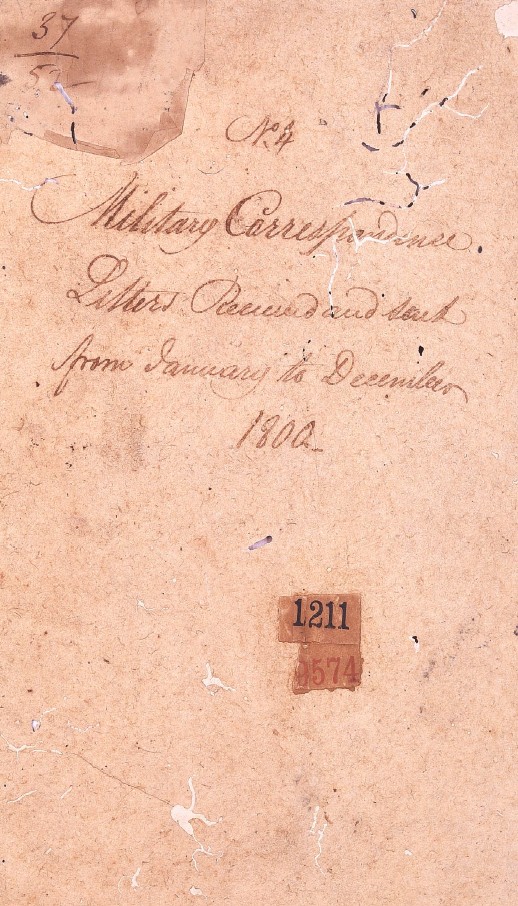 37
52
No. 4
Military Correspondence.
Letters Received and sent
from January to December
1800
1211
9574